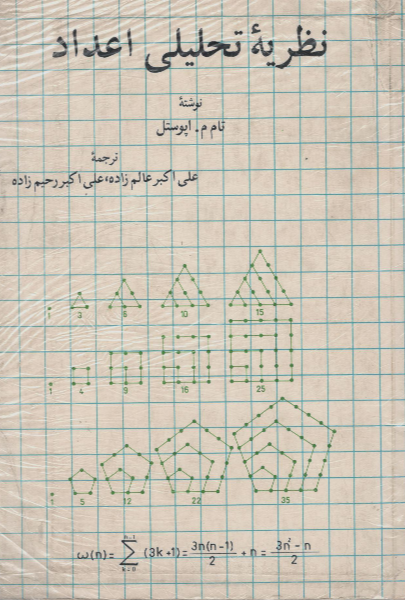 نظریهٔ تحلیلی اعداد
نوشتهٔ
تام م. اپوستل
ترجمهٔ
علی اکبر عالم زاده، علی اکبر رحیم زاده
1 3 6 10 15
1 4 9 16 25
1 5 12 22 35
ω(n) = ∑_{k=0}^{n-1} (3k+1) = 3n(n-1)/2 + n = (3n² - n)/2